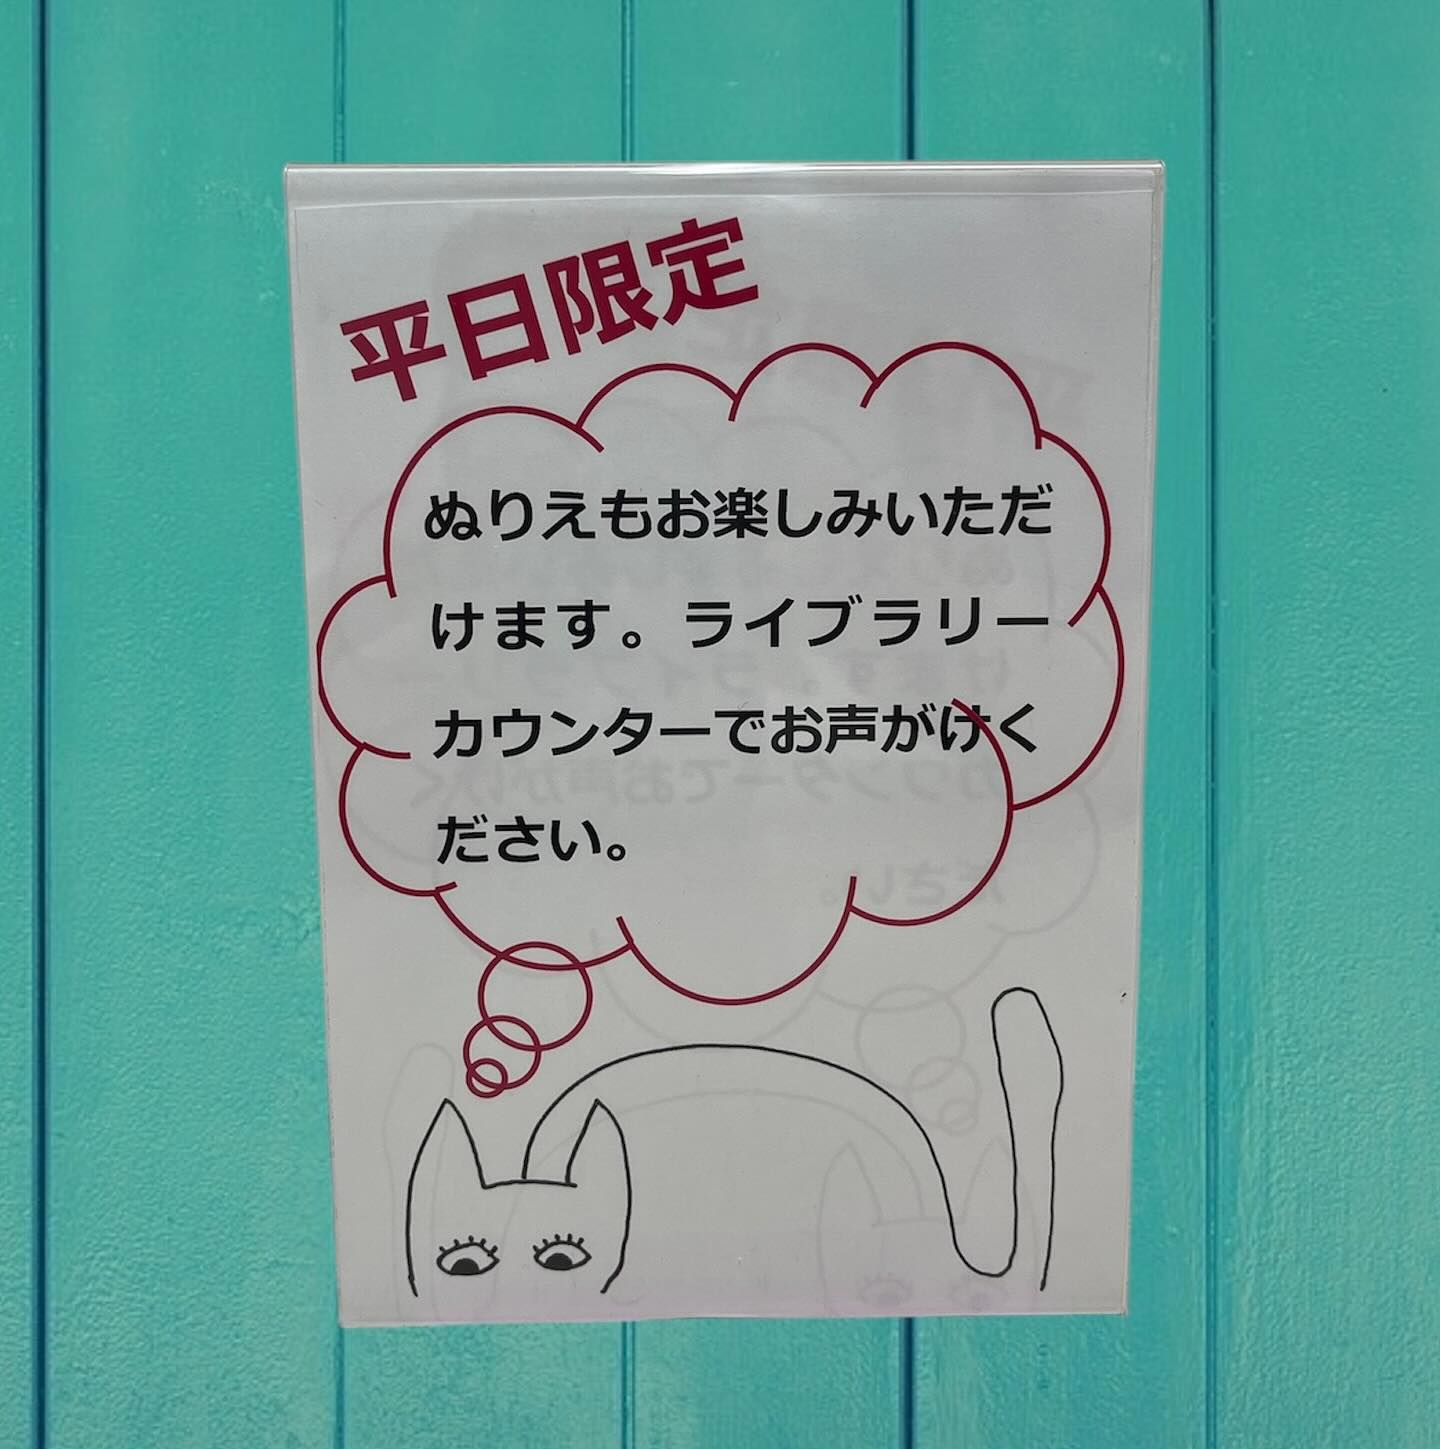 平日限定
ぬりえもお楽しみいただ
けます。ライブラリー
カウンターでお声がけく
ださい。